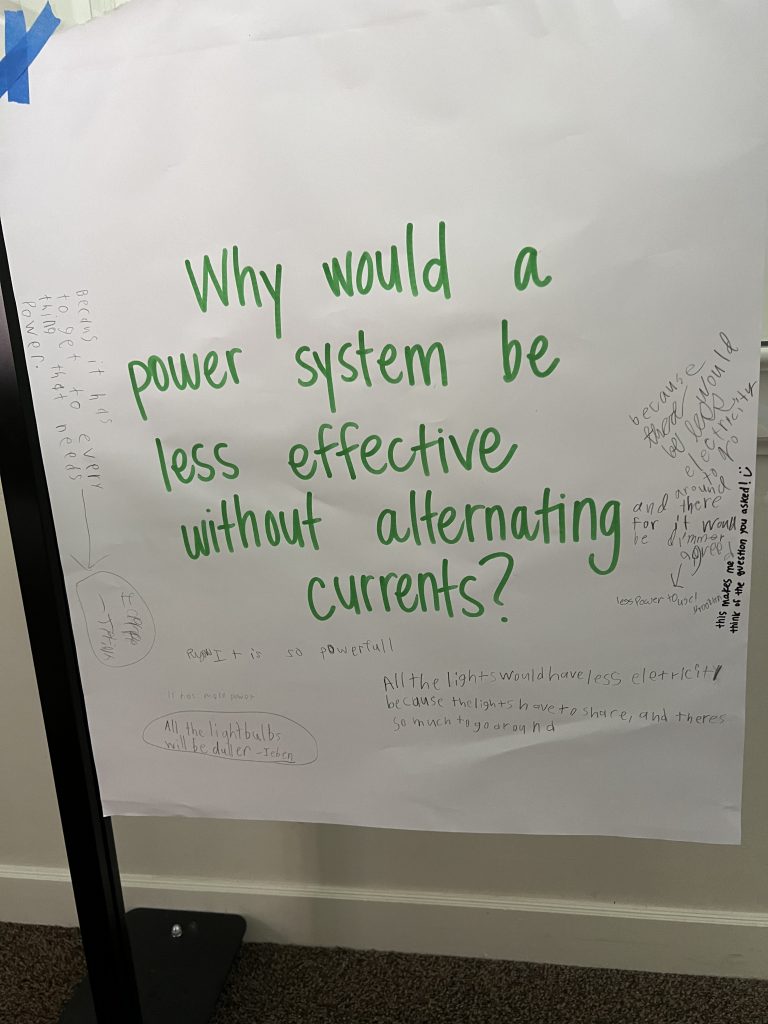 Why would a
power system be
less effective
without alternating
currents?
Becaus it has
to get to every
thing that needs
Power.
I
- I think
because
there would
be less
electricity
to go
and around
there
for it would
be dimmer
agree!
less Power to use!
this makes me
think of the question you asked! :)
It is so powerfull
It has more power
All the lightbulbs
will be duller -Ieben
All the lights would have less eletricity
because the lights have to share, and theres
so much to go around